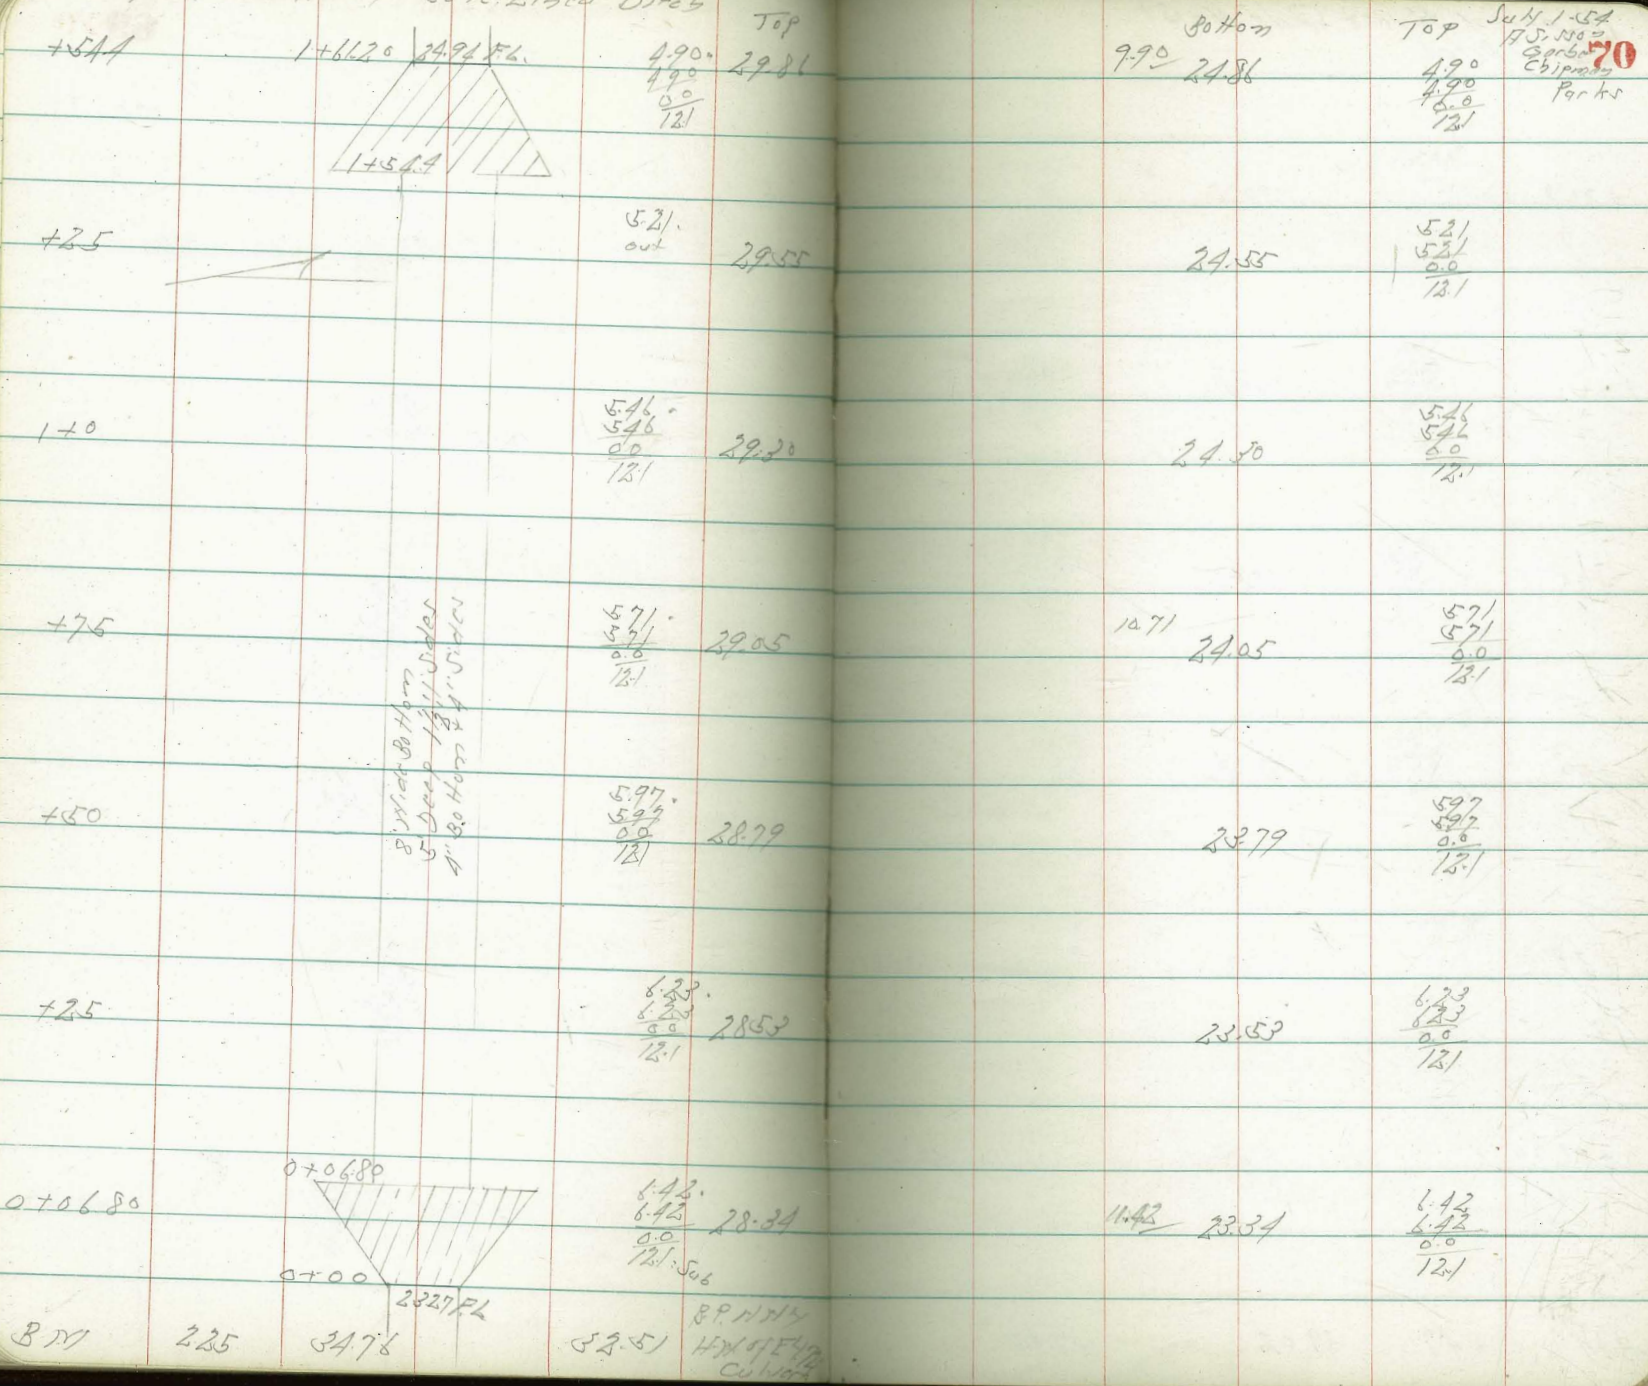 Top
+54.4
1+61.20
24.94 F.L.
4.90
4.90
0.0
12.1
29.86
1+54.4
+25
5.21
out
29.55
1+0
5.46
5.46
0.0
12.1
29.30
+75
5.71
5.71
0.0
12.1
29.05
8' Wide Bottom
4" Bottom & 4" Sides
+50
5.97
5.97
0.0
12.1
28.79
+25
6.23
6.23
0.0
12.1
28.53
0+06.80
0+06.80
6.42
6.42
0.0
12.1
28.34
0+00
23.27 F.L.
BM
2.25
34.76
32.51
Bottom
Top
70
Chipman
Parks
9.90
24.86
4.90
4.90
0.0
12.1
24.55
5.21
5.21
0.0
12.1
24.30
5.46
5.46
0.0
12.1
10.71
24.05
5.71
5.71
0.0
12.1
23.79
5.97
5.97
0.0
12.1
23.53
6.23
6.23
0.0
12.1
11.42
23.34
6.42
6.42
0.0
12.1